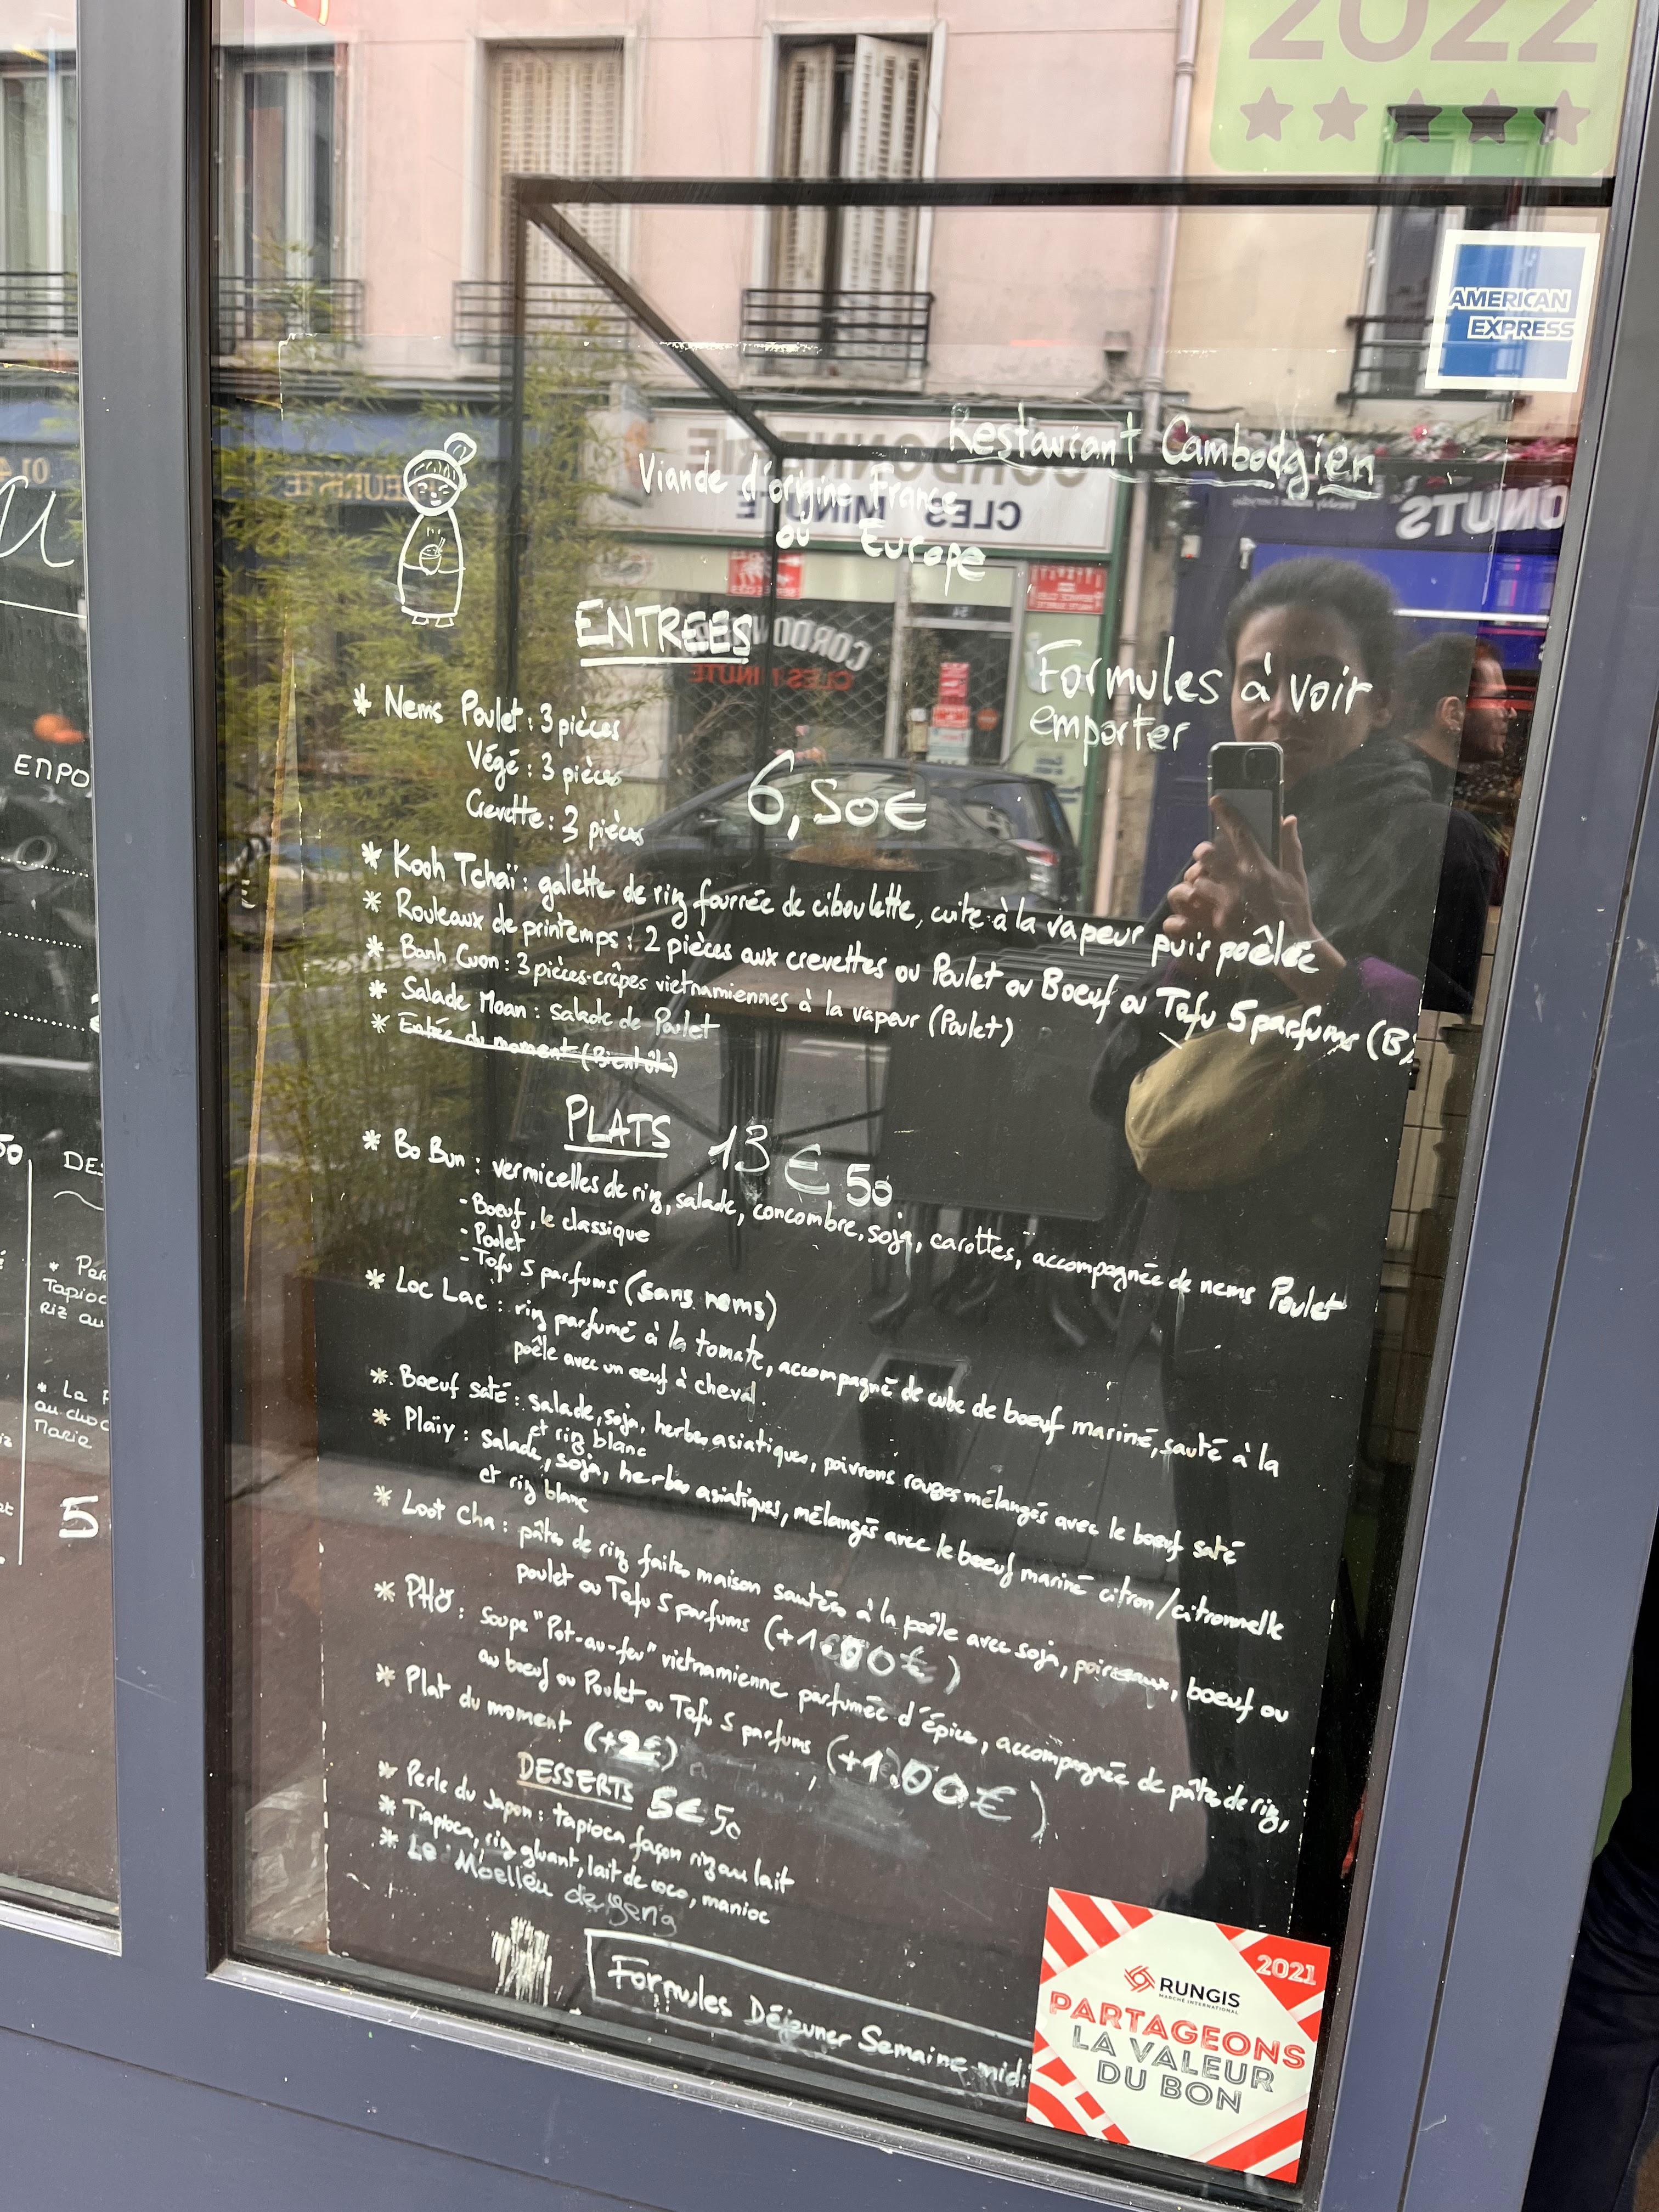 2022
AMERICAN
EXPRESS
Restaurant Cambodgien
Viande d'origine France
ou Europe
ENTREES
Formules à voir
emporter
* Nems Poulet : 3 pièces
Végé : 3 pièces
Crevette : 3 pièces
6,50€
* Kooh Tchaï : galette de riz fourrée de ciboulette, cuite à la vapeur puis poêlée
* Rouleaux de printemps : 2 pièces aux crevettes ou Poulet ou Boeuf ou Tofu 5 parfums (B)
* Banh Cuon : 3 pièces-crêpes vietnamiennes à la vapeur (Poulet)
* Salade Moan : salade de Poulet
* Entrée du moment (Bientôt)
PLATS 13€50
* Bo Bun : vermicelles de riz, salade, concombre, soja, carottes, accompagnée de nems Poulet
- Boeuf, le classique
- Poulet
- Tofu 5 parfums (sans nems)
* Loc Lac : riz parfumé à la tomate, accompagné de cube de boeuf mariné, sauté à la
poêle avec un oeuf à cheval.
* Boeuf saté : salade, soja, herbes asiatiques, poivrons rouges mélangés avec le boeuf saté
et riz blanc
* Plaïy : salade, soja, herbes asiatiques, mélangés avec le boeuf mariné citron/citronnelle
et riz blanc
* Loot Cha : pâtes de riz faites maison sautées à la poêle avec soja, poireaux, boeuf ou
poulet ou Tofu 5 parfums (+1.00€)
* PHO : soupe "Pot-au-feu" vietnamienne parfumée d'épice, accompagnée de pâtes de riz,
au boeuf ou Poulet ou Tofu 5 parfums (+1.00€)
* Plat du moment (+2€)
DESSERTS 5€50
* Perle du Japon : tapioca façon riz au lait
* Tapioca, riz gluant, lait de coco, manioc
* Le Moelleu de yeng
Formules Déjeuner Semaine midi
2021
RUNGIS
MARCHÉ INTERNATIONAL
PARTAGEONS
LA VALEUR
DU BON
EMPO
50
DES
* Per
Tapioc
RIZ au
* La
au choc
Marie
5
CORDONNERIE
CLES MINUTE